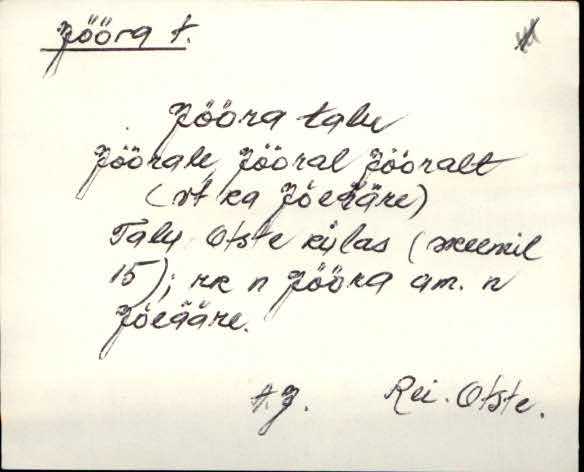 Jööra t.
Jööra talu
Jöörale Jööral Jööralt
(vt ka Jõeääre)
Talu Otste külas (skeemil
15); rk n Jööra am. n
Jõeääre.
Rei. Otste.